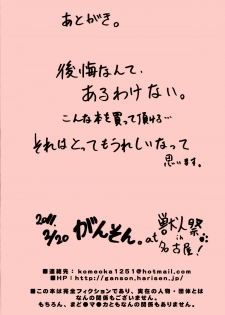 あとがき。
後悔なんて、
あるわけない。
こんな本を買って頂ける…
それはとってもうれしいなって
思います。
2011
2/20 がんそん。at 獣人祭 in 名古屋!
■連絡先：komeoka1251@hotmail.com
■HP：http://ganson.harisen.jp/
■この本は完全フィクションであり、実在の人物・団体とは
なんの関係もございません。
もちろん、まど●マ●カともなんの関係もありません。